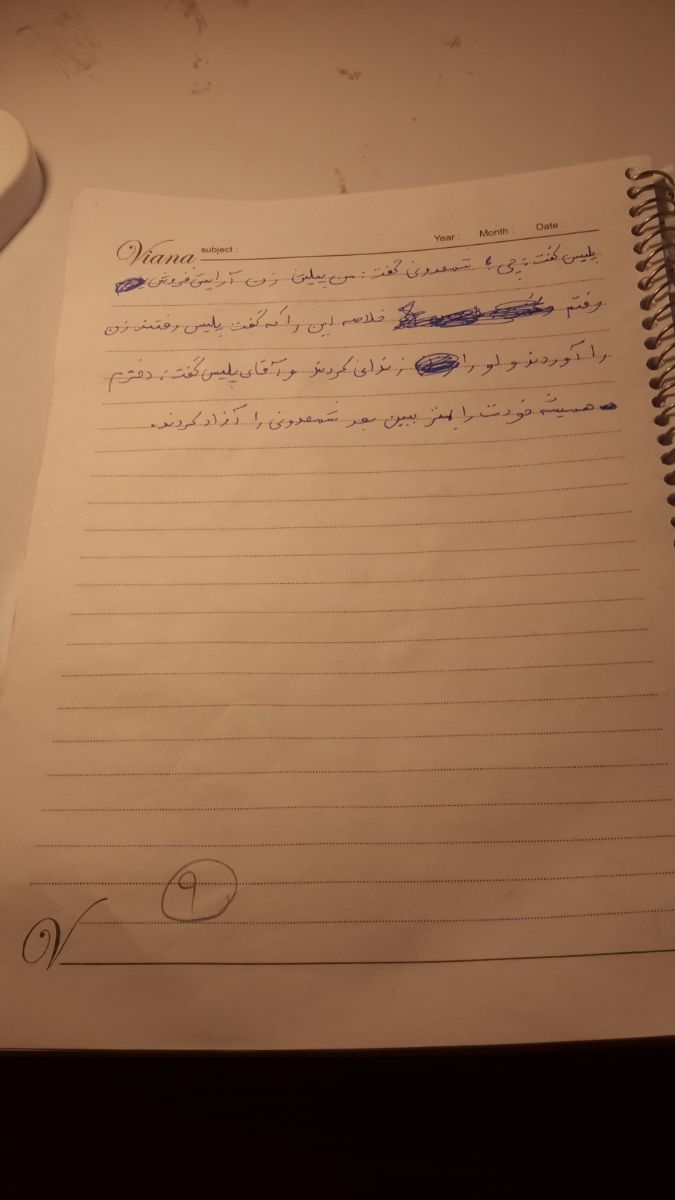 Viana subject : Year : Month : Date :
پلیس گفت : چی ؟ شمعدونی گفت : من پیش زن آرایش فروش
رفتم خلاصه این را که گفت پلیس رفتند زن
را آوردند و او را زندانی کردند و آقای پلیس گفت : دخترم
همیشه خودت را ببین بعد شمعدونی را آزاد کردند.
۹
V